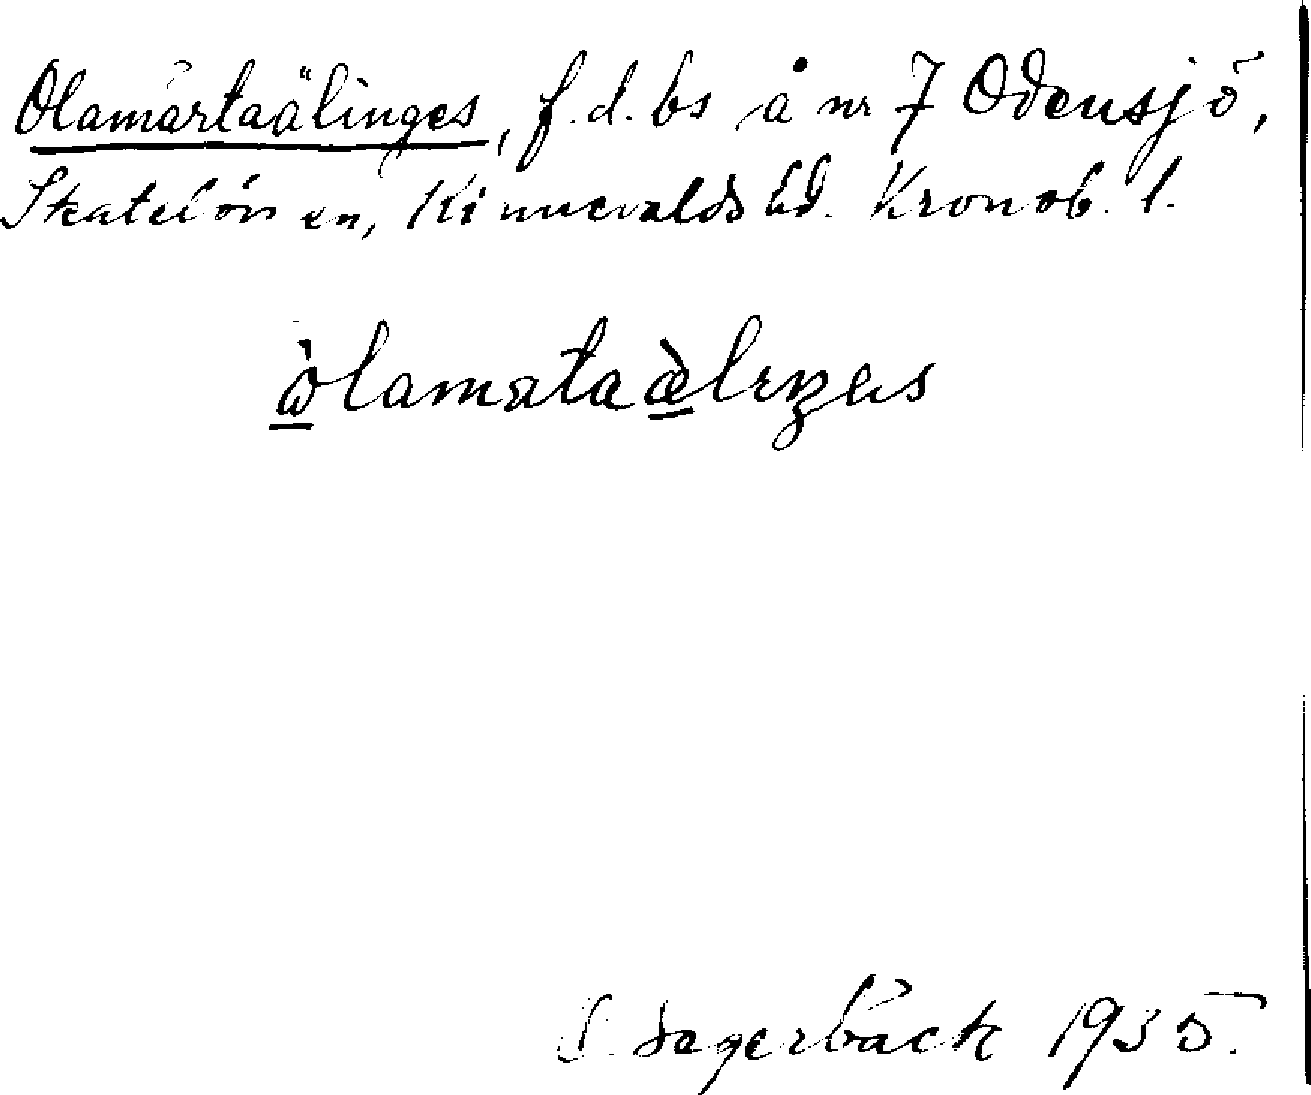 Olamärtaälinges, f.d. bs å nr 7 Odensjö,
Skatelöv sn, Kinnevalds hd. Kronob. l.
ὼlamætaæ̀lıŋəs
S. Segerbäck 1935.